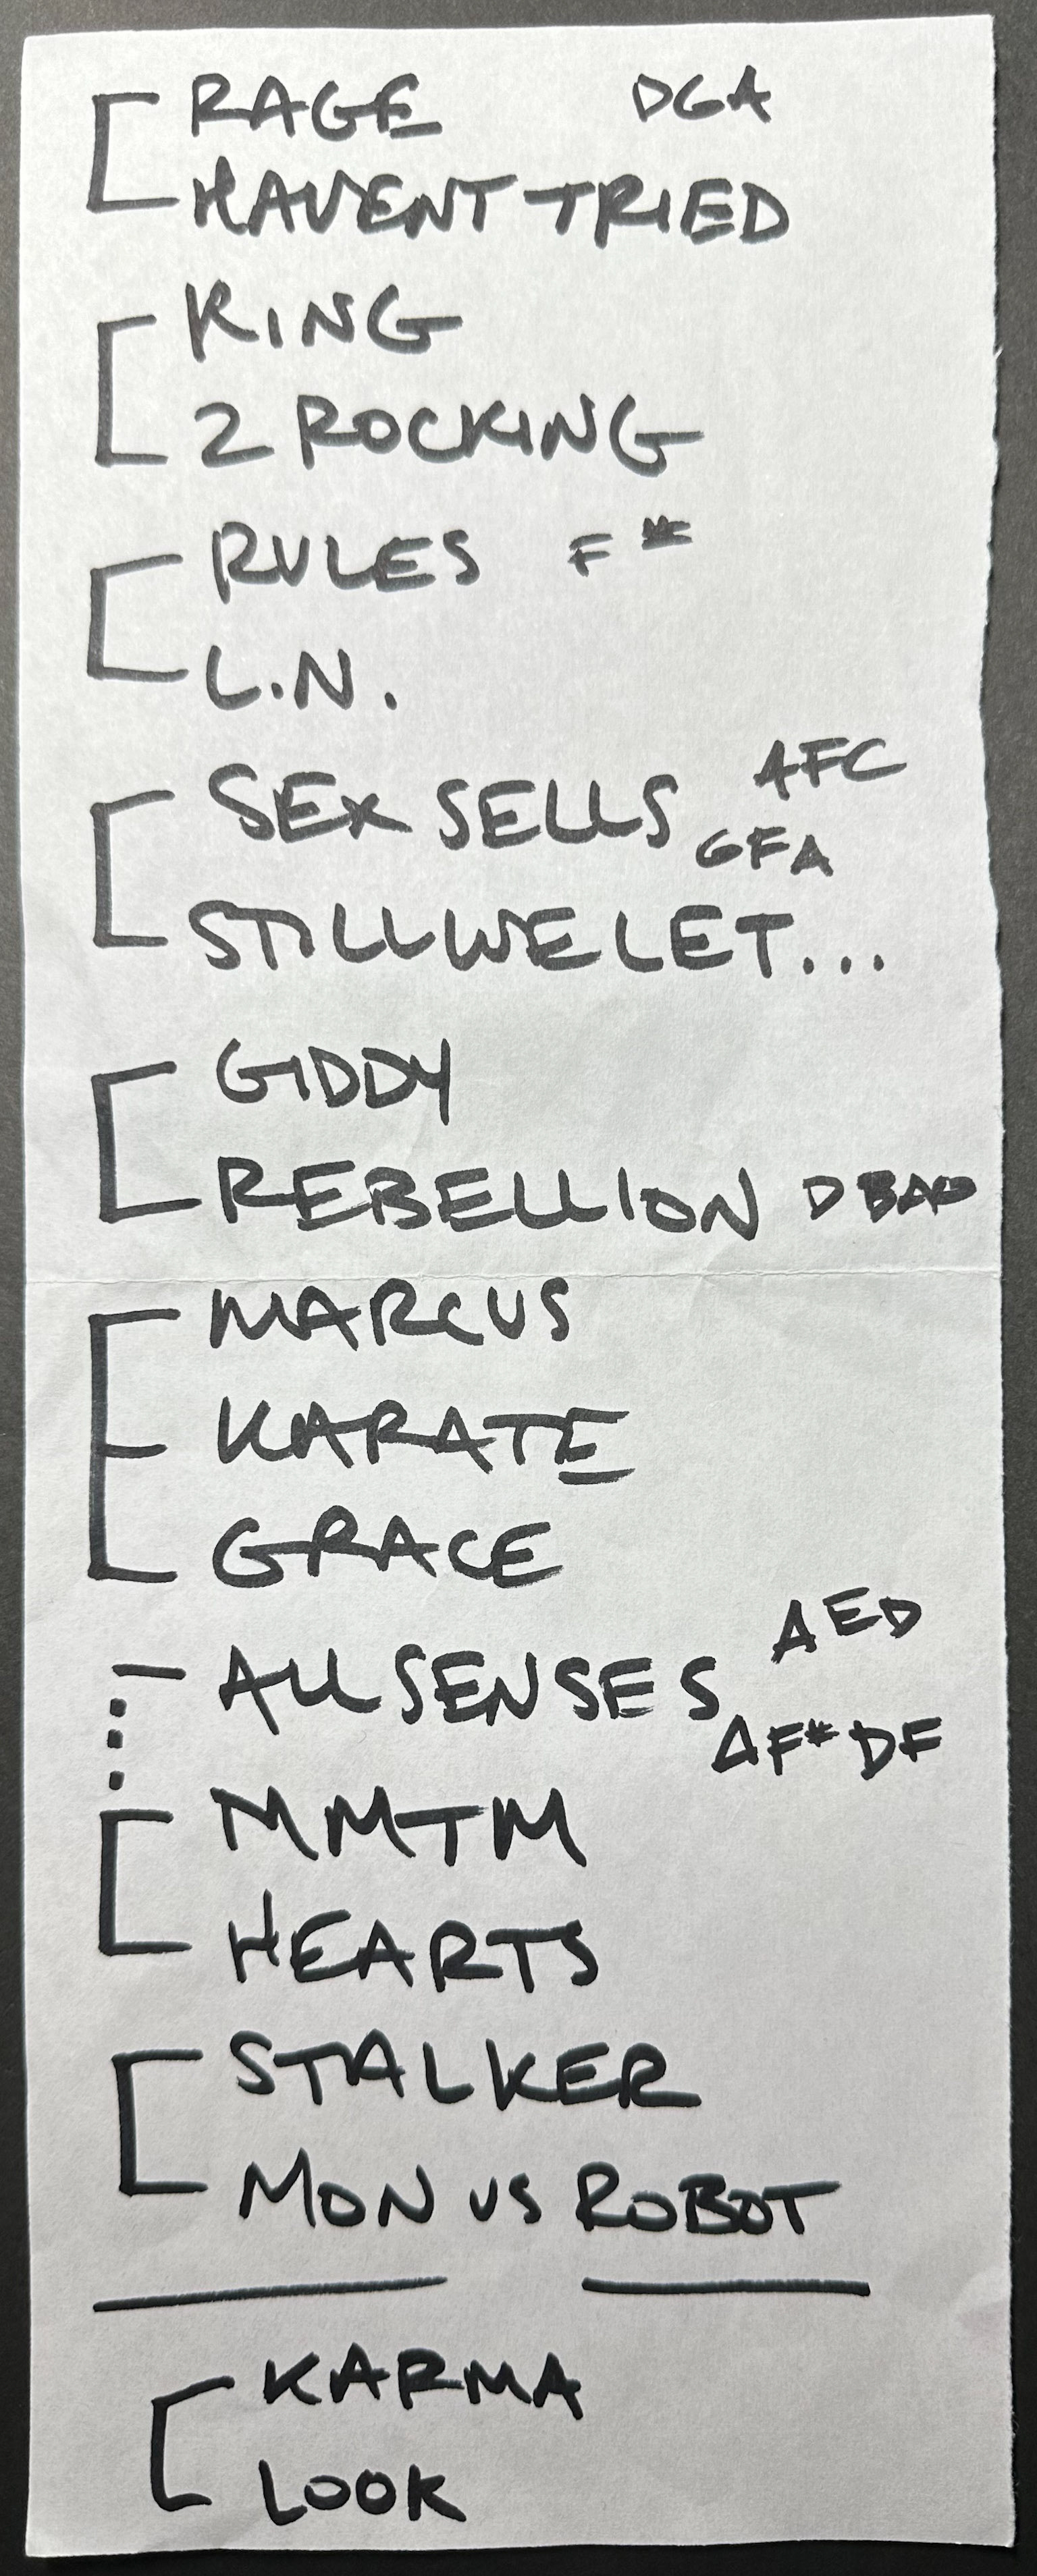 RAGE DGA
HAVENT TRIED
KING
2 ROCKING
RULES F#
L.N.
SEX SELLS AFC
GFA
STILL WE LET...
GIDDY
REBELLION D BAD
MARCUS
KARATE
GRACE
ALL SENSES AED
AF# DF
MMTM
HEARTS
STALKER
MON VS ROBOT
KARMA
LOOK